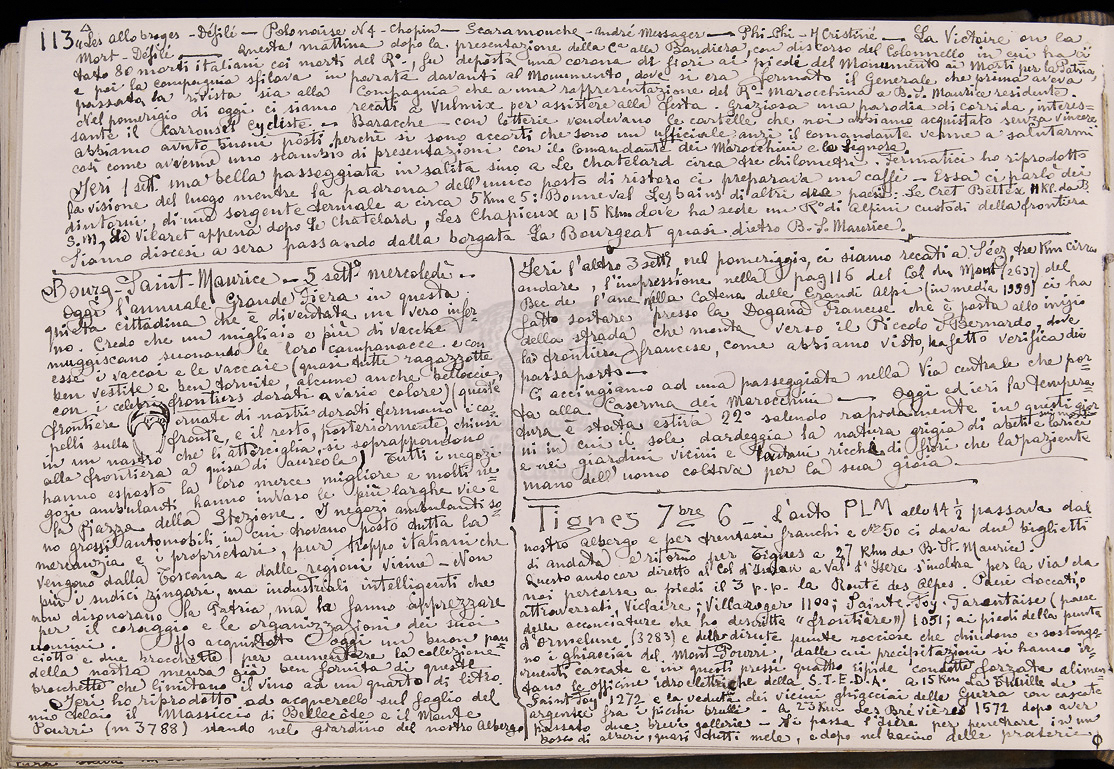 113
"Les allobroges - Défilé - Polonaise N 4 - Chopin - Scaramouche - André Messager - Phi-Phi - H Cristiné - La Victoire ou la
Mort - Défilé - Questa mattina dopo la presentazione della Cia alla Bandiera, con discorso del Colonnello in cui ha ci
tato 80 morti italiani coi morti del Ro, fu deposta una corona di fiori ai piedi del Monumento ai Morti per la Patria,
e poi la compagnia sfilava in parata davanti al Monumento, dove si era fermato il Generale che prima aveva
passata la rivista sia alla Compagnia che a una rappresentazione del Ro Marocchino a B. S. Maurice residente.
Nel pomerigio di oggi ci siamo recati a Vulmix per assistere alla festa. Graziosa una parodia di corrida, interes=
sante il Carrousel Cycliste. - Baracche con lotterie vendevano le cartelle che noi abbiamo acquistato senza vincere
abbiamo avuto buoni posti perchè si sono accorti che sono un ufficiale anzi il comandante venne a salutarmi
così come avvenne uno scambio di presentazioni con il Comandante dei Marocchini e la Signora.
Jeri 1 sett. una bella passeggiata in salita sino a Le Chatelard circa tre chilometri. Fermatici ho riprodotto
la visione del luogo mentre la padrona dell'unico posto di ristoro ci preparava un caffè - Essa ci parlò dei
dintorni, di una sorgente termale a circa 5 Km e 5: Bonneval Les bains di altri due paesi: Le Cret Bettex 11 Kl. da B.
S. M., Le Vilaret appena dopo Le Chatelard, Les Chapieux a 15 Khm dove ha sede un Ro di Alpini custodi della frontiera
Siamo discesi a sera passando dalla borgata La Bourgeat quasi dietro B. S. Maurice.
Bourg-Saint-Maurice - 5 setto mercoledì -
Oggi l'annuale Grande Fiera in questa
quieta cittadina che è diventata un vero infer=
no. Credo che un migliaio e più di vacche
muggiscano suonando le loro campanacce e con
esse i vaccai e le vaccaie (quasi tutte ragazzotte
ben vestite e ben tornite, alcune anche belloccie,
con i celebri frontiers dorati a vario colore) (queste
frontière ornate di nastri dorati fermano i ca=
pelli sulla fronte, e il resto, posteriormente, chiusi
in un nastro che li attorciglia, si soprappondono
alla frontiera a guisa di aureola) Tutti i negozi
hanno esposto la loro merce migliore e molti ne=
gozi ambulanti hanno invaso le più larghe vie e
la Piazza della Stazione. I negozi ambulanti so=
no grossi automobili in cui trovano posto tutta la
mercanzia e i proprietari, pur troppo italiani che
vengono dalla Toscana e dalle regioni vicine - Non
più i sudici zingari, ma industriali intelligenti che
non disonorano la Patria, ma la fanno apprezzare
per il coraggio e le organizzazioni dei suoi
uomini. Ho acquistato oggi un buon pan
ciotto e due brocchette per aumentare la collezione
della nostra mensa già ben fornita di queste
brocchette che limitano il vino ad un quarto di litro.
Jeri ho riprodotto ad acquerello sul foglio del
mio telaio il Massiccio di Bellecôte e il Monte
Pourri (m 3788) stando nel giardino del nostro Albergo
Jeri l'altro 3 sett, nel pomeriggio, ci siamo recati a Séez, tre Km circa
andare, l'impressione nella pag 116 del Col du Mont (2637) del
Bec de l'ane nella Catena delle Grandi Alpi (in media 1999) ci ha
fatto sostare presso la Dogana Francese che è posta allo inizio
della strada che monta verso il Piccolo S. Bernardo, dove
la frontiera francese, come abbiamo visto, ha fatto verifica dei
passaporti -
Ci accingiamo ad una passeggiata nella Via centrale che por=
ta alla Caserma dei Marocchini - Oggi ed ieri la tempera
tura è stata estiva 22° salendo rapidamente in questi gior
ni in cui il sole dardeggia la natura grigia di abeti e larici
e nei giardini vicini e lontani ricchi di fiori che la paziente
mano dell'uomo coltiva per la sua gioia.
Tignes 7bre 6 - L'auto PLM alle 14 ½ passava dal
nostro albergo e per trentasei franchi e 50 ci dava due biglietti
di andata e ritorno per Tignes a 27 Khm da B. St. Maurice.
Questo autocar diretto al Col d'Iseran a Val d'Isere s'inoltra per la via da
noi percorsa a piedi il 3 p.p. la Route des Alpes. Paesi toccati o
attraversati, Viclaire; Villaroger 1100; Sainte-Foy-Tarentaise (paese
delle acconciature che ho descritto "frontière") 1051; ai piedi della punta
d'Ormelune (3283) e delle dirute punte rocciose che chiudono e sostengo=
no i ghiacciai del Mont-Pourri, dalle cui precipitazioni si hanno ir=
ruenti cascate e in questi pressi quattro ripide condotte forzate alimen=
tano le officine idroelettriche della S.T.E.D.A. a 15 Km La Thuille de
Saint Foy 1272 e la veduta dei vicini ghiacciai delle Gurra con cascate
argentee fra i picchi brulli - a 23 Km Les Brévières 1572 dopo aver
passato due brevi gallerie - Si passa l'Isère per penetrare in un
bosco di alberi, quasi tutti mele, e dopo nel bacino delle praterie